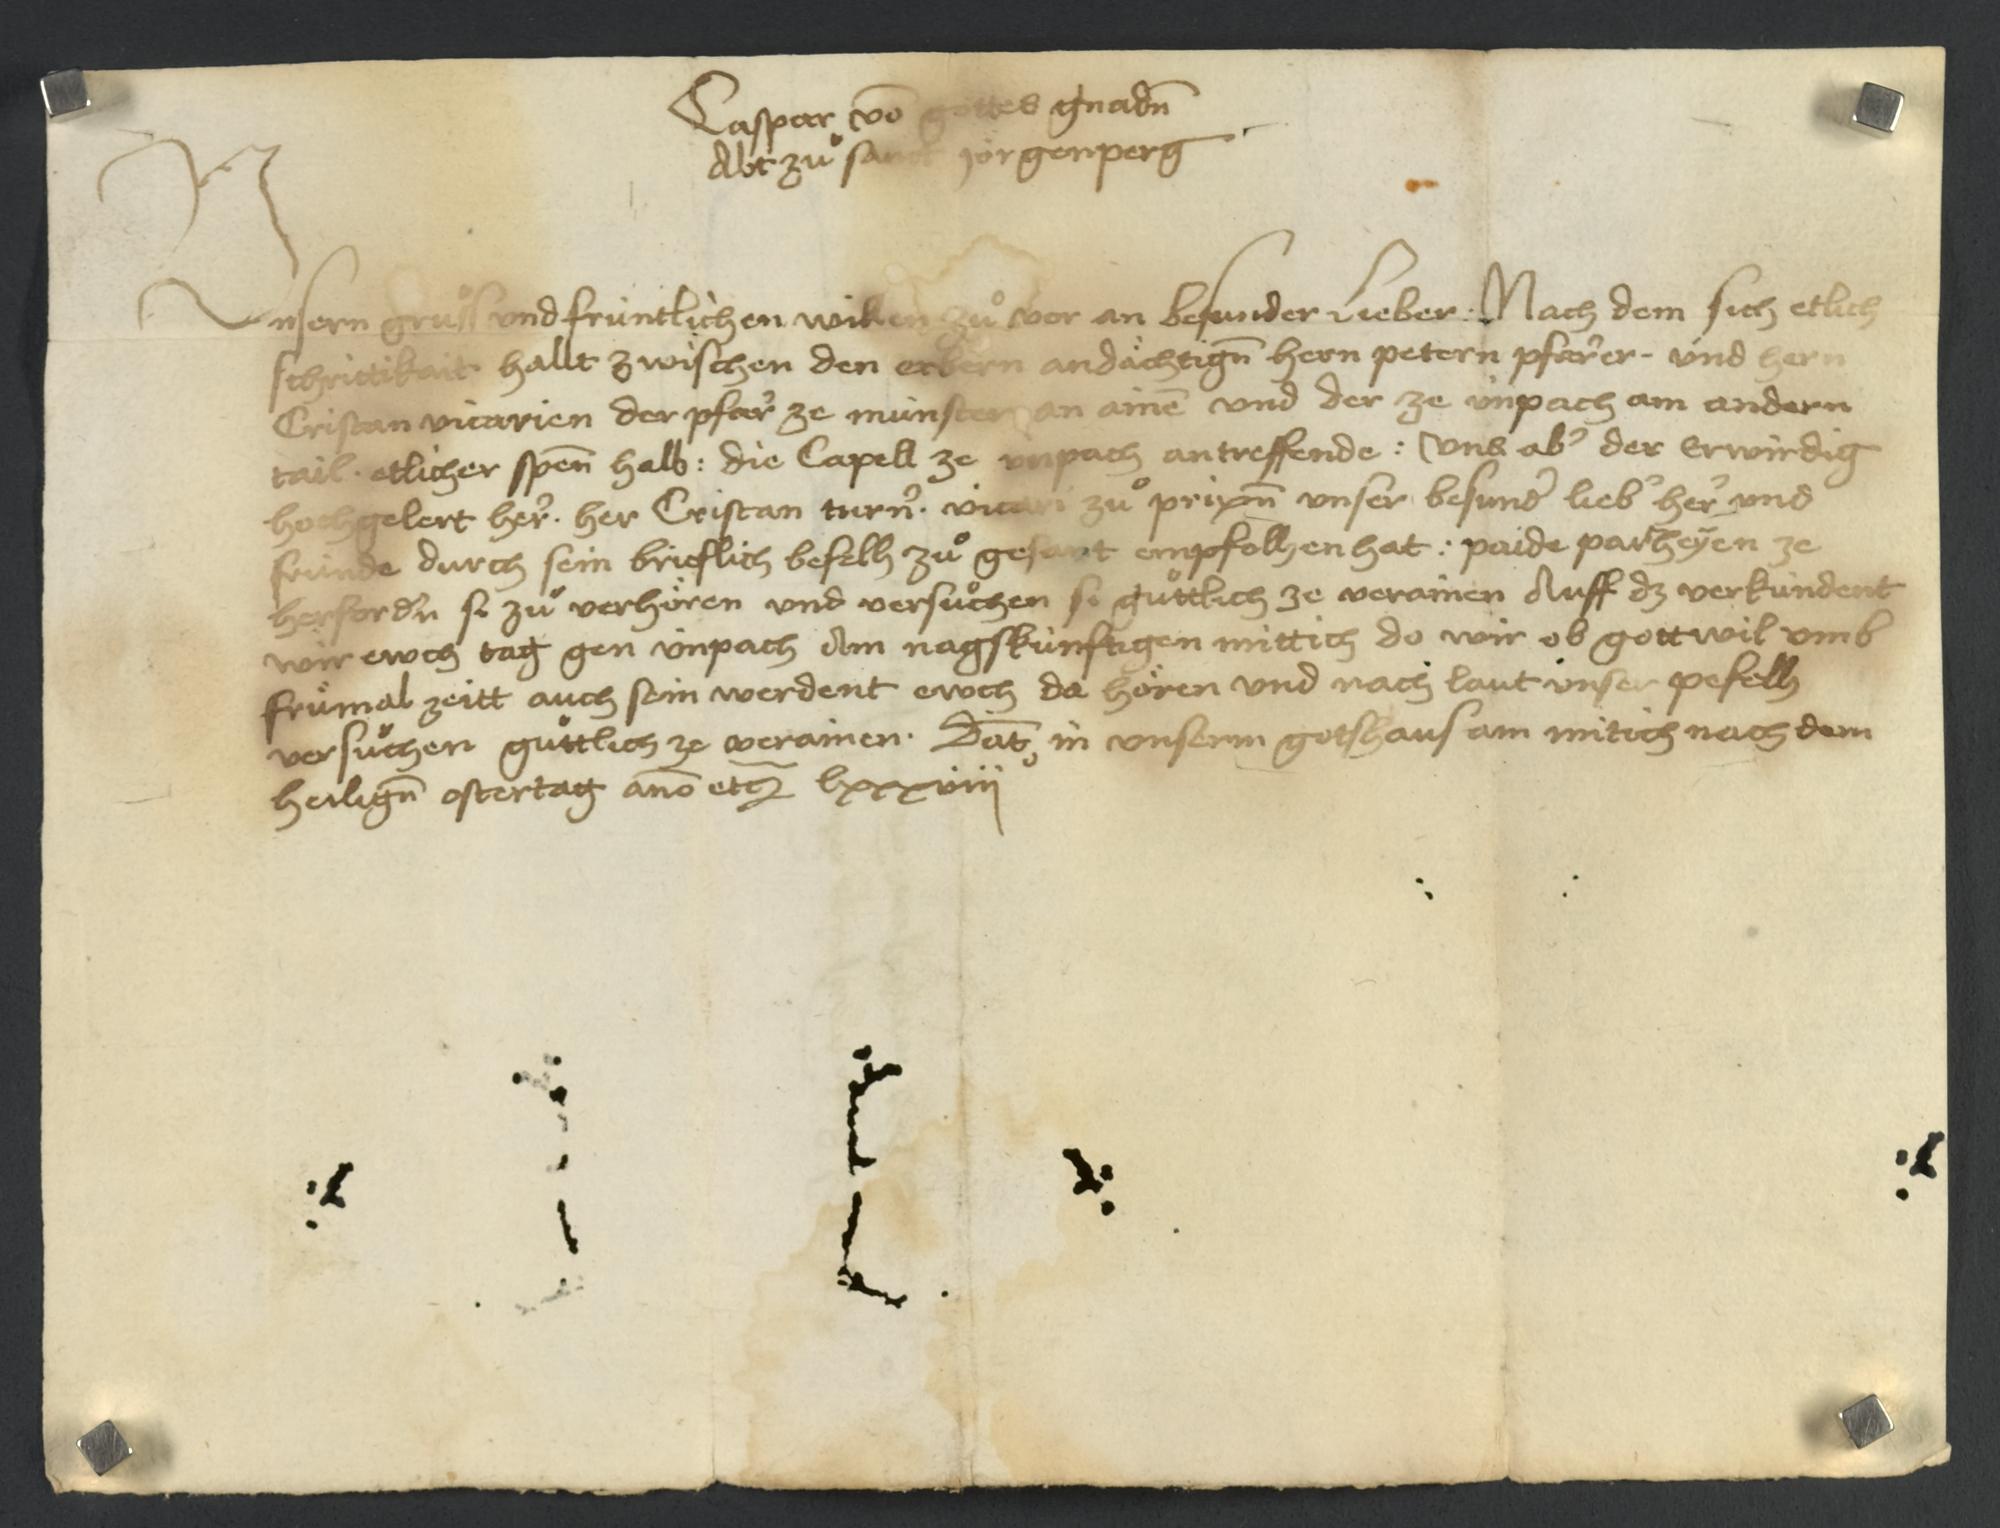 Caspar vō gottes gnadn̄
Abt zů sanct jörgenperg
Unsern grůss und fruntlichen willen zů vor an besunder Lieber : Nach dem sich etlich
schrittikait hallt zwischen den erbern andächtign̄ hern petern pfarer - und hern
Cristan vicarien der pfar ze munster an ainē und der ze vnpach am andern
tail · etlicher spēn halb : die Capell ze vnpach antreffende : Uns ab' der Erwirdig
hochgelert her · her Cristan turn' · vicari zů prixn̄ unser besund' lieb' her und
frunde durch sein brieflich befelh zů gesant empfolhen hat : paide partheÿen ze
herfordn̄ si zů verhören und versůchen si gůttlich ze verainen Auff dz verkundent
wir ewch tag gen vnpach Am nagskunftigen mittich do wir ob gott wil umb
frůmal zeitt auch sein werdent ewch da hören und nach laut unser pefelh
versůchen gůttlich ze verainen · Dat̄ in unserm gotshaus am mitich nach dem
heilign̄ ostertag an̄o etc̄ lxxxviiij°